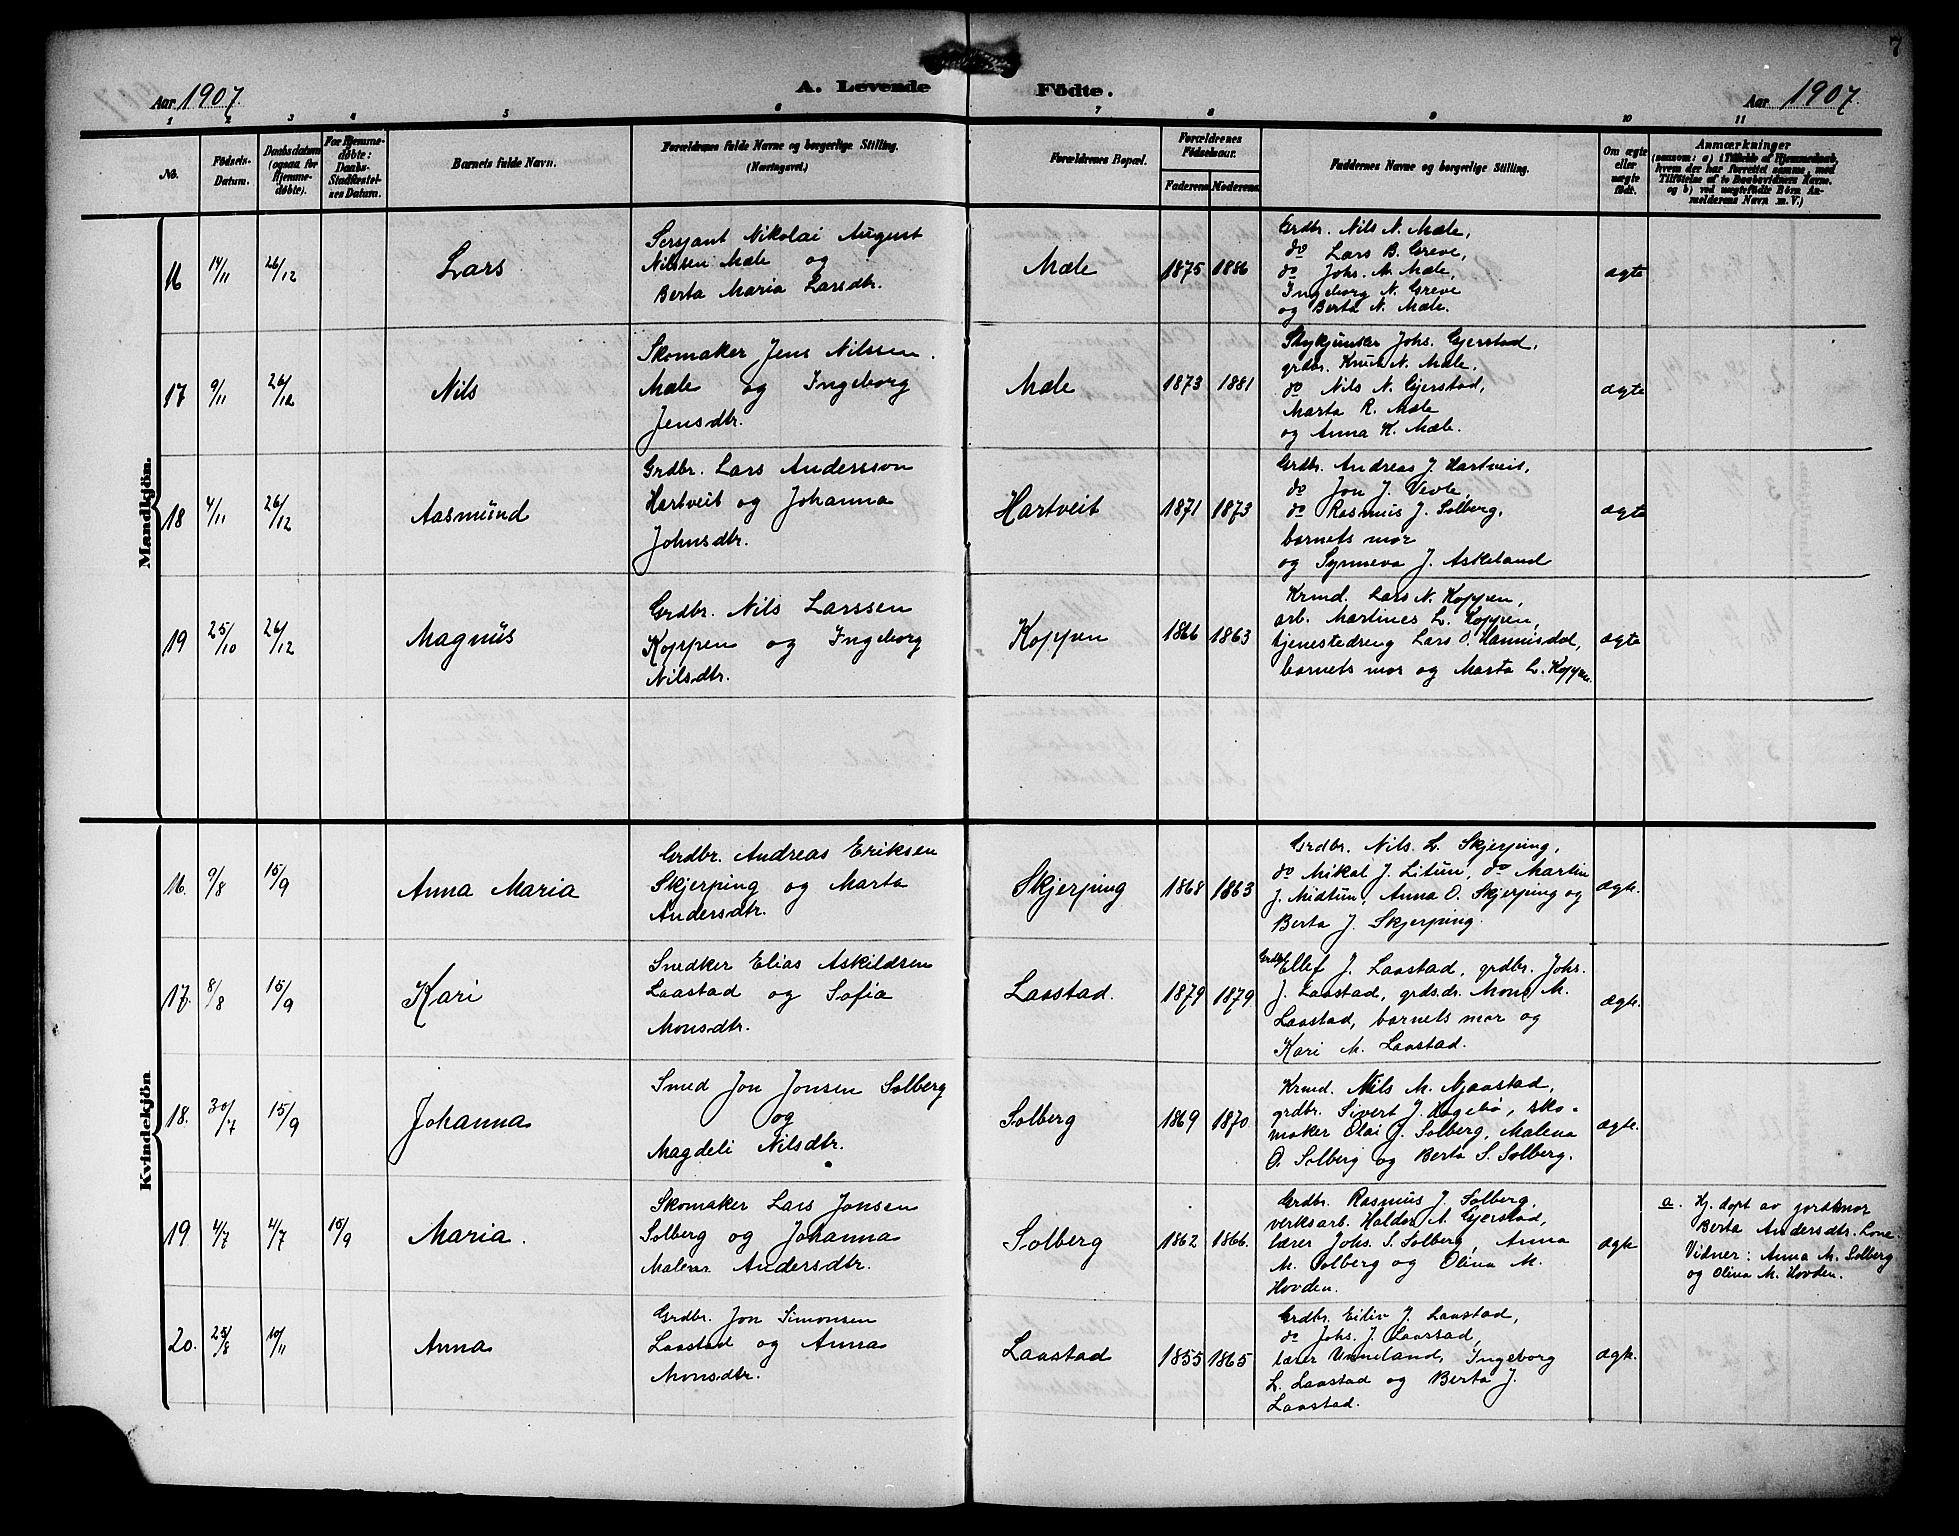 7
Aar 1907.
A. Levende Födte.
Aar 1907.
1 2 3 4 5 6 7 8 9 10 11
No.
Födsels-
Datum.
Daabsdatum
(ogsaa for
Hjemme-
døbte).
For Hjemme-
døbte:
Daabs-
Stadfæstel-
ses Datum.
Barnets fulde Navn.
Forældrenes fulde Navne og borgerlige Stilling.
(Næringsvei.)
Forældrenes Bopæl.
Forældrenes
Födselsaar.
Faderens Moderens
Faddernes Navne og borgerlige Stilling.
Om ægte
eller
uægte
født.
Anmærkninger
(saasom: a) i Tilfælde af Hjemmedaab,
hvem der har forrettet samme, med
Tilföielse af to Daabsvidners Navne,
og b) ved uægtefödte Börn An-
melderens Navn m. V.)
Mandkjön.
16 14/11 26/12 Lars
Sersjant Nikolai August
Nilssen Mæle og
Berta Maria Larsdtr.
Mæle 1875 1886
Grdbr. Nils N. Mæle,
do Lars B. Greve,
do Johs. M. Mæle,
Ingeborg N. Greve
og Berta N. Mæle.
ægte
17 9/11 26/12 Nils
Skomaker Jens Nilssen
Mæle og Ingeborg
Jensdtr.
Mæle 1873 1881
Johs. Gjerstad,
grdbr. Knut N. Mæle,
do Nils N. Gjerstad,
Marta R. Mæle
og Anna K. Mæle.
ægte
18 4/11 26/12 Aasmund
Grdbr. Lars Andersson
Hartveit og Johanna
Johnsdtr.
Hartveit 1871 1873
Grdbr. Andreas J. Hartveit,
do Jon J. Vevle,
do Rasmus J. Solberg,
barnets mor
og Synneva J. Askeland
ægte
19 25/10 26/12 Magnus
Grdbr. Nils Larssen
Koppen og Ingeborg
Nilsdtr.
Koppen 1866 1863
Krmd. Lars N. Koppen,
arb. Martines L. Koppen,
tjenestedreng Lars O. Hannisdal,
barnets mor og Marta L. Koppen.
ægte
Kvindekjön
16. 9/8 15/9 Anna Maria
Grdbr. Andreas Eriksen
Skjerping og Marta
Andersdtr.
Skjerping 1868 1863
Grdbr. Nils L. Skjerping,
do Mikal J. Litun, do Martin
J. Midtun, Anna O. Skjerping og
Berta J. Skjerping.
ægte.
17. 8/8 15/9 Kari
Snedker Elias Askildsen
Laastad og Sofia
Monsdtr.
Laastad. 1879 1879
Grdbr. Ellef J. Laastad, grdbr. Johs.
J. Laastad, grds.dr. Mons M.
Laastad, barnets mor og
Kari M. Laastad.
ægte.
18. 30/7 15/9 Johanna
Smed Jon Jonsen Solberg
og
Magdeli Nilsdtr.
Solberg 1869 1870
Krmd. Nils M. Njaastad,
grdbr. Sivert J. Hagebø, sko-
maker Olai J. Solberg, Malena
O. Solberg og Berta S. Solberg.
ægte.
19 4/7 4/7 15/9 Maria.
Skomaker Lars Jonsen
Solberg og Johanna
Malena Andersdtr.
Solberg 1862 1866.
Grdbr. Rasmus J. Solberg,
verksarb. Haldor A. Gjerstad,
lærer Johs. S. Solberg, Anna
M. Solberg og Olina M.
Hovden.
ægte
a. Hj. døpt av jordmor
Berta Andersdtr. Lone
Vidner: Anna M. Solberg
og Olina M. Hovden.
20. 25/8 10/11 Anna
Grdbr. Jon Simonsen
Laastad og Anna
Monsdtr.
Laastad 1855 1865
Grdbr. Eiliv J. Laastad,
do Johs. J. Laastad,
lærer Unneland, Ingeborg
L. Laastad og Berta J.
Laastad.
ægte.